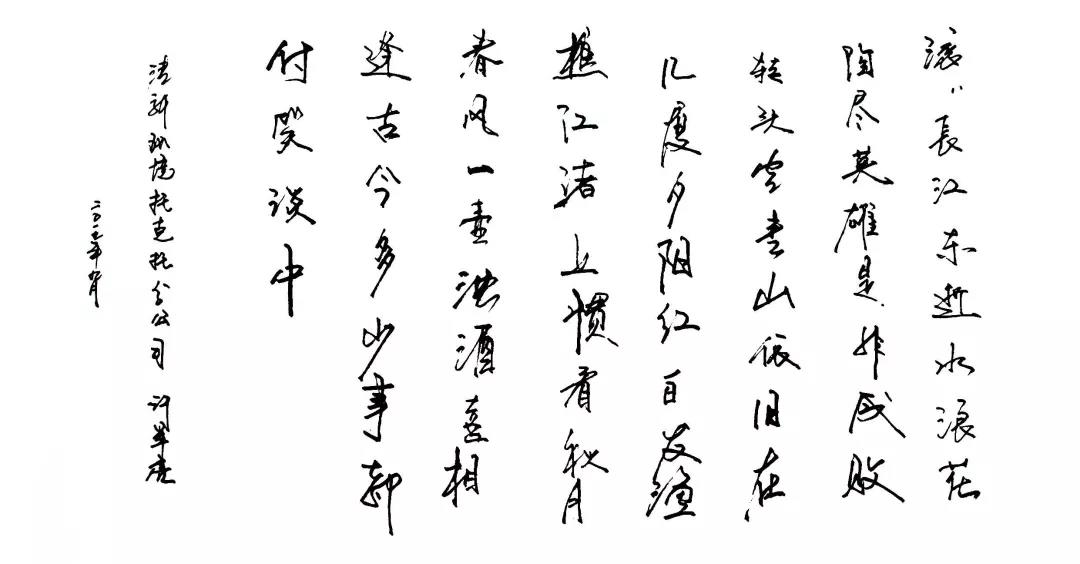 滚〃長江东逝水浪花
陶尽英雄是非成败
转头空青山依旧在
几度夕阳红白发渔
樵江渚上惯看秋月
春风一壶浊酒喜相
逢古今多少事都
付笑谈中
清新环境托克托分公司 许
二〇一七年月